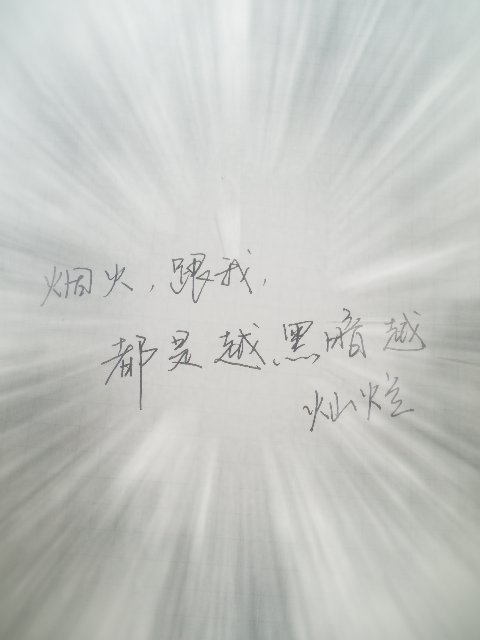 烟火，跟我，
都是越黑暗越
灿烂